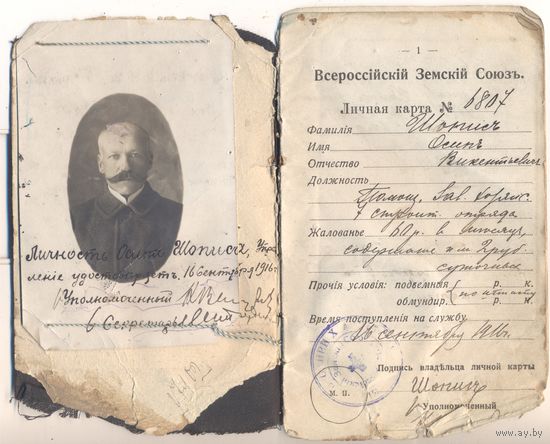 Личность Осипа Шопись, Упра
леніе удостоверяетъ. 16 Сентября 1916 г.
Уполномоченный
Секретарь
— 1 —
Всероссійскій Земскій Союзъ.
Личная карта № 6807
Фамилія Шопись
Имя Осипъ
Отчество Викентьевич
Должность
Помощ. Зав. Хозяй.
7 строит. отряда
Жалованье 60 р. в
содержание
суточных
Прочія условія: подъемныя ( р. к.
обмундир. ( р. к.
по штату
Время поступленія на службу.
16 сентября 1916 г.
Подпись владѣльца личной карты
Шопись
М. П.
Уполномоченный
www.ay.by